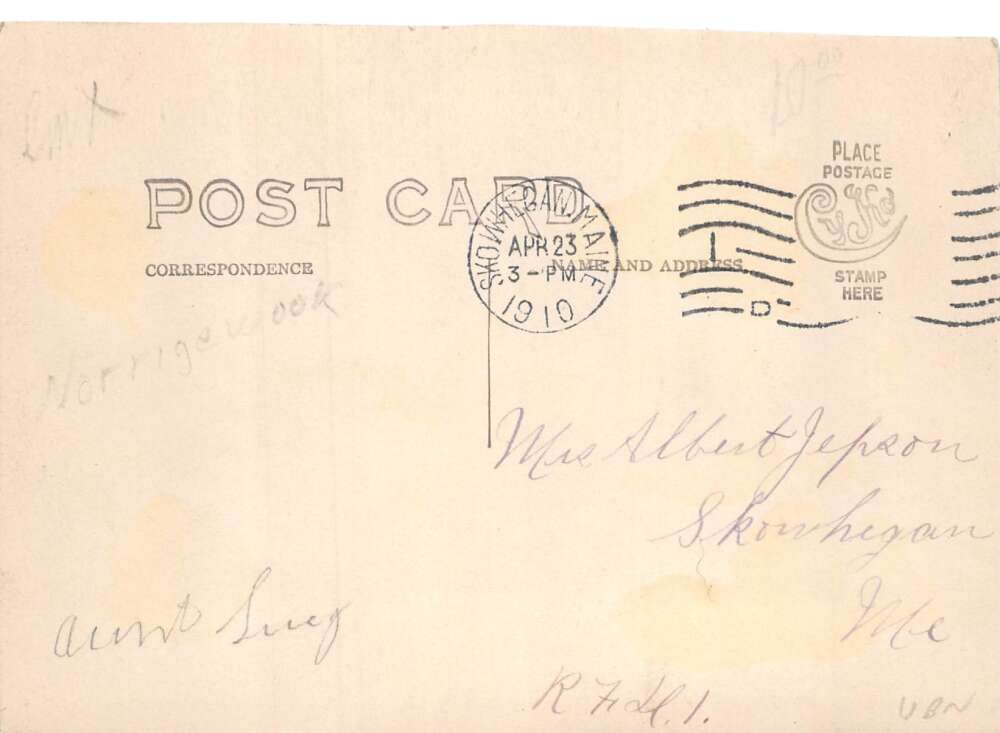 10.00
PLACE
POSTAGE
CYKO
STAMP
HERE
POST CARD
SKOWHEGAN, MAINE
APR 23
3 - PM
1910
D
CORRESPONDENCE
NAME AND ADDRESS
Norrigewook
Mrs Albert Jepson
Skowhegan
Me
Aunt Lucy
R F D. 1.